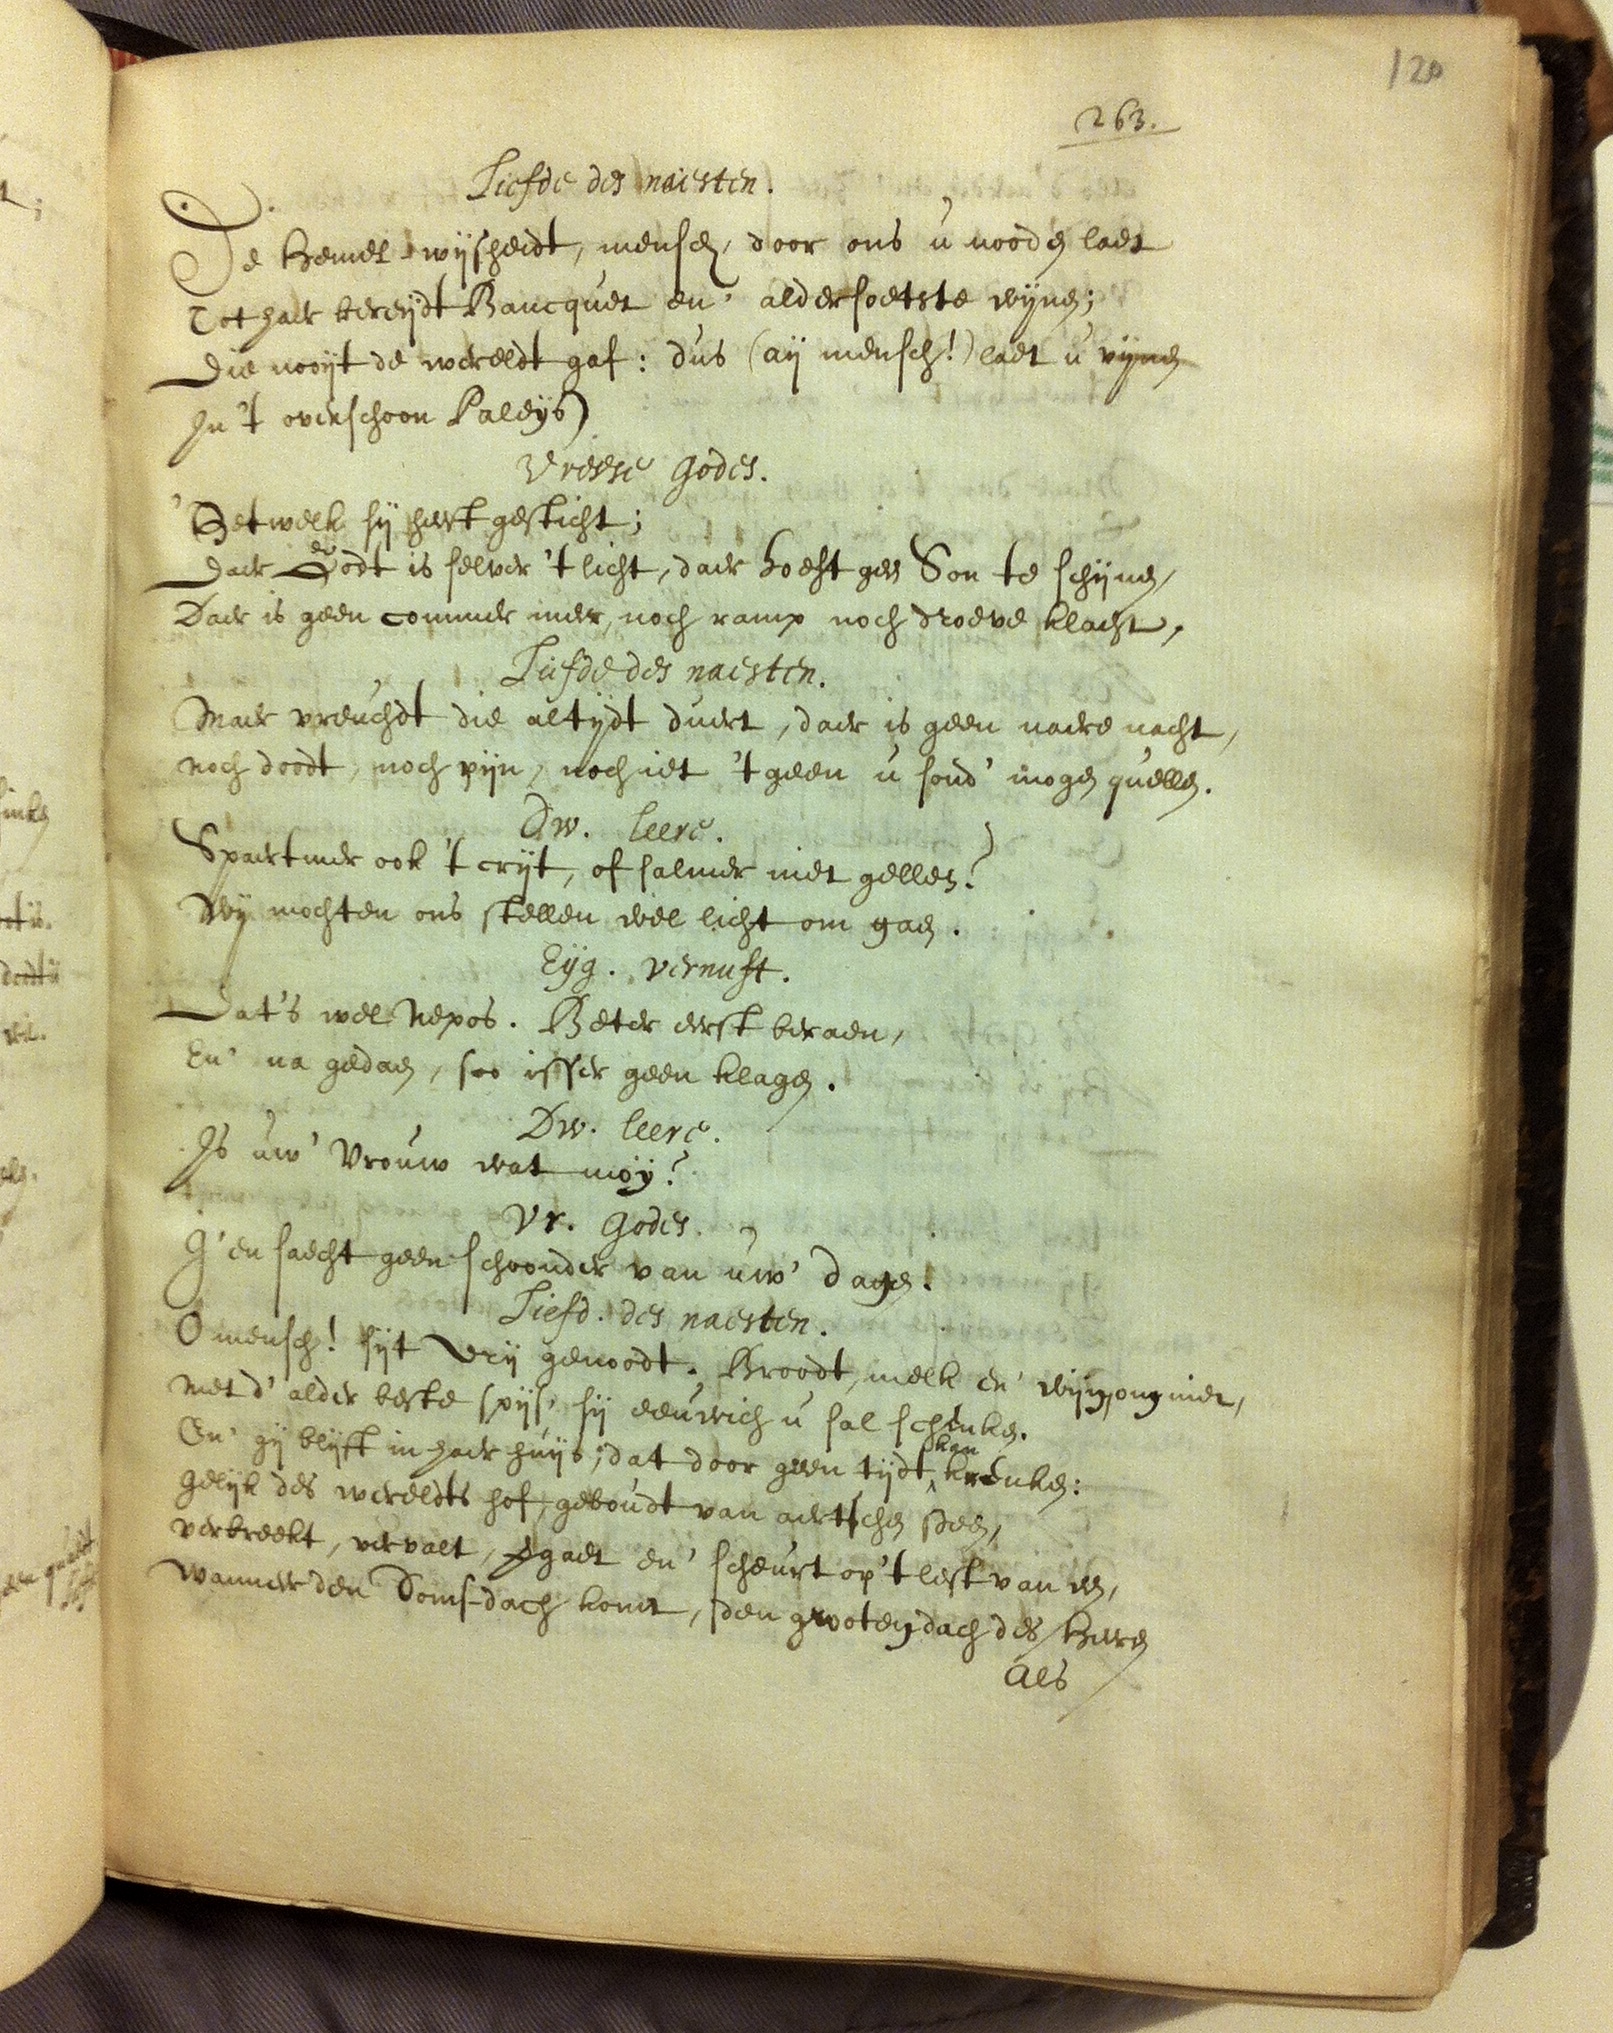 120
263.
Liefde des naesten.
De hemel-wijsheidt, mensch, door ons u nooden laet
Tot haer bereijdt Bancquet en' aldersoetste wijnen;
Die nooijt de wereldt gaf: dus (aij mensch!) laet u vijnen
In 't overschoon Paleijs
Vreese Godes.
'Hetwelk sij heeft gesticht;
Daer Godt is selver 't licht, daer hoeft geen Son te schijnen,
Daer is geen commer meer, noch ramp noch droeve klacht,
Liefde des naesten.
Maer vreuchdt die altijdt duert, daer is geen naere nacht,
noch doodt, noch pijn, noch iet 't geen u soud' mogen quellen.
Dw. leere.
Spaertmer ook 't crijt, of salmer niet gellen?
Wij mochten ons stellen wel licht om gaen.
Eijg. vernuft.
Dat's wel Nepos. Beter eerst beraen,
En' na gedaen, soo isser geen klagen.
Dw. leere.
Is uw' Vrouw wat moij?
Vr. Godes.
G'en saecht geen schoonder van uw' dagen.
Liefd. des naesten.
O mensch! sijt vrij genoodt. Broodt, melk en' wijn, ong met,
met d' alder beste spijs, sij eeuwich u sal schenken.
En' gij blijft in haer huijs; dat door geen tijdt kan krenken:
gelijk des wereldts hof, geboudt van aertschen steen,
verbreekt, vervalt, vergaet en' scheurt op 't lest van een,
wanneer den Doms-dach komt, den grooten dach des Heeren
Als